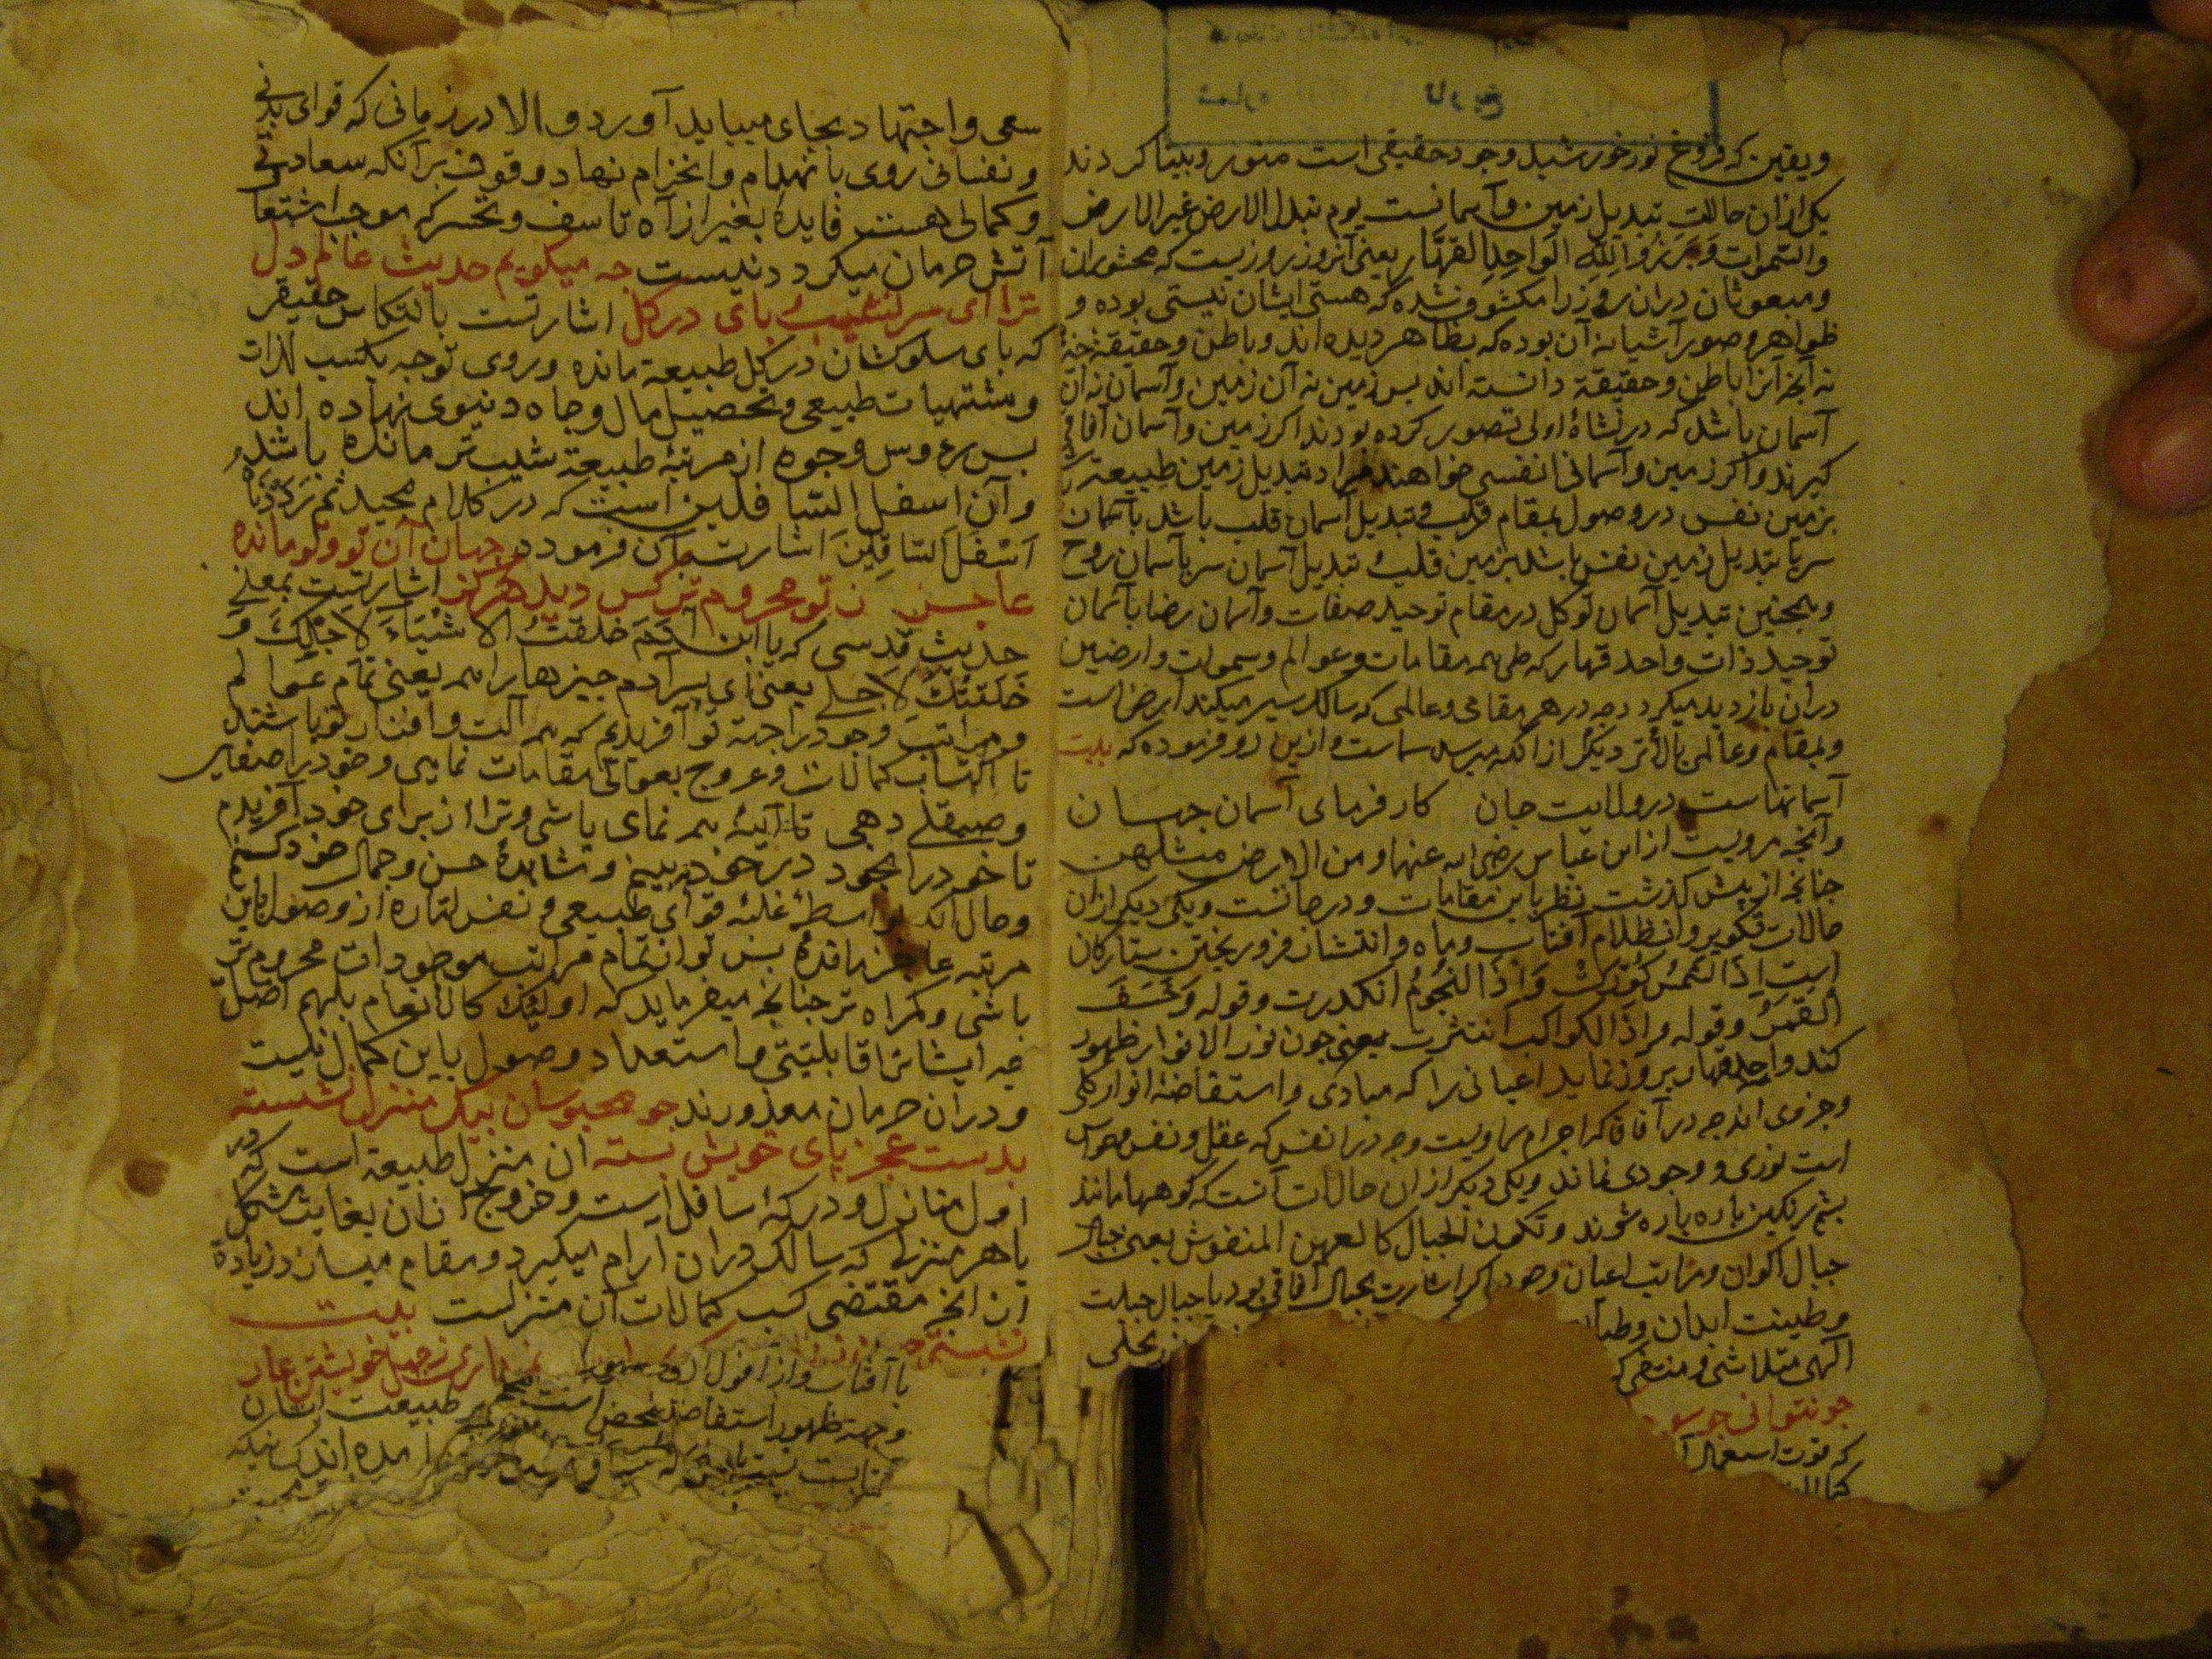 ویقین که فروغ نور خورشید وجود حقیقی است منور و بینا کردند
یکی ازان حالات تبدیل زمین و آسمانست یوم تبدل الارض غیر الارض
والسموات وَبَرَزُوا لِلّٰهِ الوَاحِدِ القهّار یعنی آنروز روزیست که محشوران
ومبعوثان دران روز را مکشوف شده که هستی ایشان نیستی بوده و
ظواهر و صور آشیا نه آن بوده که بظاهر دیده اند و باطن و حقیقة
نه آنچه آنرا باطن و حقیقة دانسته اند بس زمین نه آن زمین و آسمان نه آن
آسمان باشد که در نشاهٔ اولی تصور کرده بودند اکر زمین و آسمان آفاقی
کیرند و اکر زمین و آسمانی انفسی خواهند مراد تبدیل زمین طبیعة
بزمین نفس در وصول بمقام قلب و تبدیل آسمان قلب باشد بآسمان
سر یا تبدیل زمین نفس باشد بزمین قلب و تبدیل آسمان سر بآسمان روح
وهمچنین تبدیل آسمان توکل در مقام توحید صفات و آسمان رضا بآسمان
توحید ذات واحد قهار که طی همه مقامات و عوالم و سموات و ارضین
دران بازدید میکردد چه در هر مقامی و عالمی که سالک سیر میکند ارض است
و بمقام و عالمی بالاتر دیکر ازانکه میرسد سماست و ازین رو فرموده که بیت
آسمانهاست در ولایت جان کارفرمای آسمان جهان
و آنچه مرویست از ابن عباس رضی الله عنها و من الارض مثلهن
چنانچه از پیش کذشت نظر باین مقامات و درجانست و یکی دیکر ازان
حالات تکویر و انظلام آفتاب و ماه و انتشار و فرو ریختن ستارکان
است اِذَا الشَّمسُ کُوِّرَتْ وَاِذَا النُّجُومُ انکدرت و قوله وَخَسَفَ
القَمَرُ و قوله و اذا الکواکب انتثرت یعنی چون نور الانوار ظهور
کند و واحد قهار بروز نماید اعیانی را که مبادی و استفاضهٔ انوار کلی
و جزوی اند چه در آفاق که اجرام سماویست و چه در انفس که عقل و نفس و حواس
است نوری و وجودی نماند و یکی دیکر ازان حالات آنست که کوهها مانند
پشم رنکین باره باره شوند و تکون الجبال کالعهن المنفوش یعنی جبال
جبال اکوان و مراتب اعیان وجود اکر اشارت بجبال آفاقی بود یا جبال جبلت
و طینت ابدان و طبا
ز تجلی
الهی متلاشی و منتفی کر
چو نتوانی جو سو
که قوت استعمال آ
کمالا
سعی و اجتهاد بجای میباید آورد و الا در زمانی که قوای بدنی
و نفسانی روی بانهدام و انخزام نهاد و قوف برآنکه سعادتی
و کمالی هست فایدهٔ بغیر از آه تاسف و تحسر که موجب اشتعا
آتش حرمان میکردد نیست چه میکویم حدیث عالم دل
ترا ای سرنشیب پای در کل اشارتست بانتکاس حقیقر
که پای سلوکشان در کل طبیعة مانده و روی توجه بکسب لذات
و مشتهیات طبیعی و تحصیل مال و جاه دنیوی نهاده اند
بس رؤوس وجوه از مرتبهٔ طبیعة شیب تر مانده باشد
و آن اسفل السافلین است که در کلام مجید ثم رَدَدْنَاهُ
اَسْفَلَ السَّافِلِینَ اشارت بآن فرمود جهان آن تو و تو مانده
عاجز ز تو محروم تر کس دید هرکز اشارتست بمعنی
حدیث قدسی که یا ابن آدَمَ خَلَقْتُ الاَشْیَاءَ لِاَجْلِکَ وَ
خَلَقْتُکَ لِاَجلی یعنی ای پسر آدم چیزها را همه یعنی تمام عوالم
و مراتب وجود را جهة تو آفریدیم که همه آلت و افزار تو باشند
تا اکتساب کمالات و عروج بعوالی مقامات نمایی و خود را صفایی
و صیقلی دهی تا آینهٔ همه نمای باشی و ترا از برای خود آفریدم
تا خود را بخود در خود ببینم و مشاهدهٔ حسن و جمال خود کنم
و حال آنکه بواسطهٔ غلبه قوای طبیعی و نفس اماره از وصول باین
مرتبه عاجز ماندهٔ بس تو از تمام مراتب موجودات محروم تر
باشی و کمراه تر چنانچه میفرماید که اولئک کالانعام بل هم اضل
چه ایشانرا قابلیتی و استعداد وصول باین کمال نیست
و دران حرمان معذورند چو محبوسان بیک منزل نشسته
بدست عجز پای خویش بسته آن منزل طبیعة است که در
اول منازل و درکهٔ سافل است و خروج ازان بغایت مشکل
یا هر منزلی که سالک دران آرام میکیرد و مقام میسازد زیادة
ازانچه مقتضی کسب کمالات آن منزلست بیت
نشستی
یا آفتاب و از افول
نمیداری ز جهل خویشتن عار
و جهة ظهور استفاضه محض است
طبیعت ایشان
آمده اند